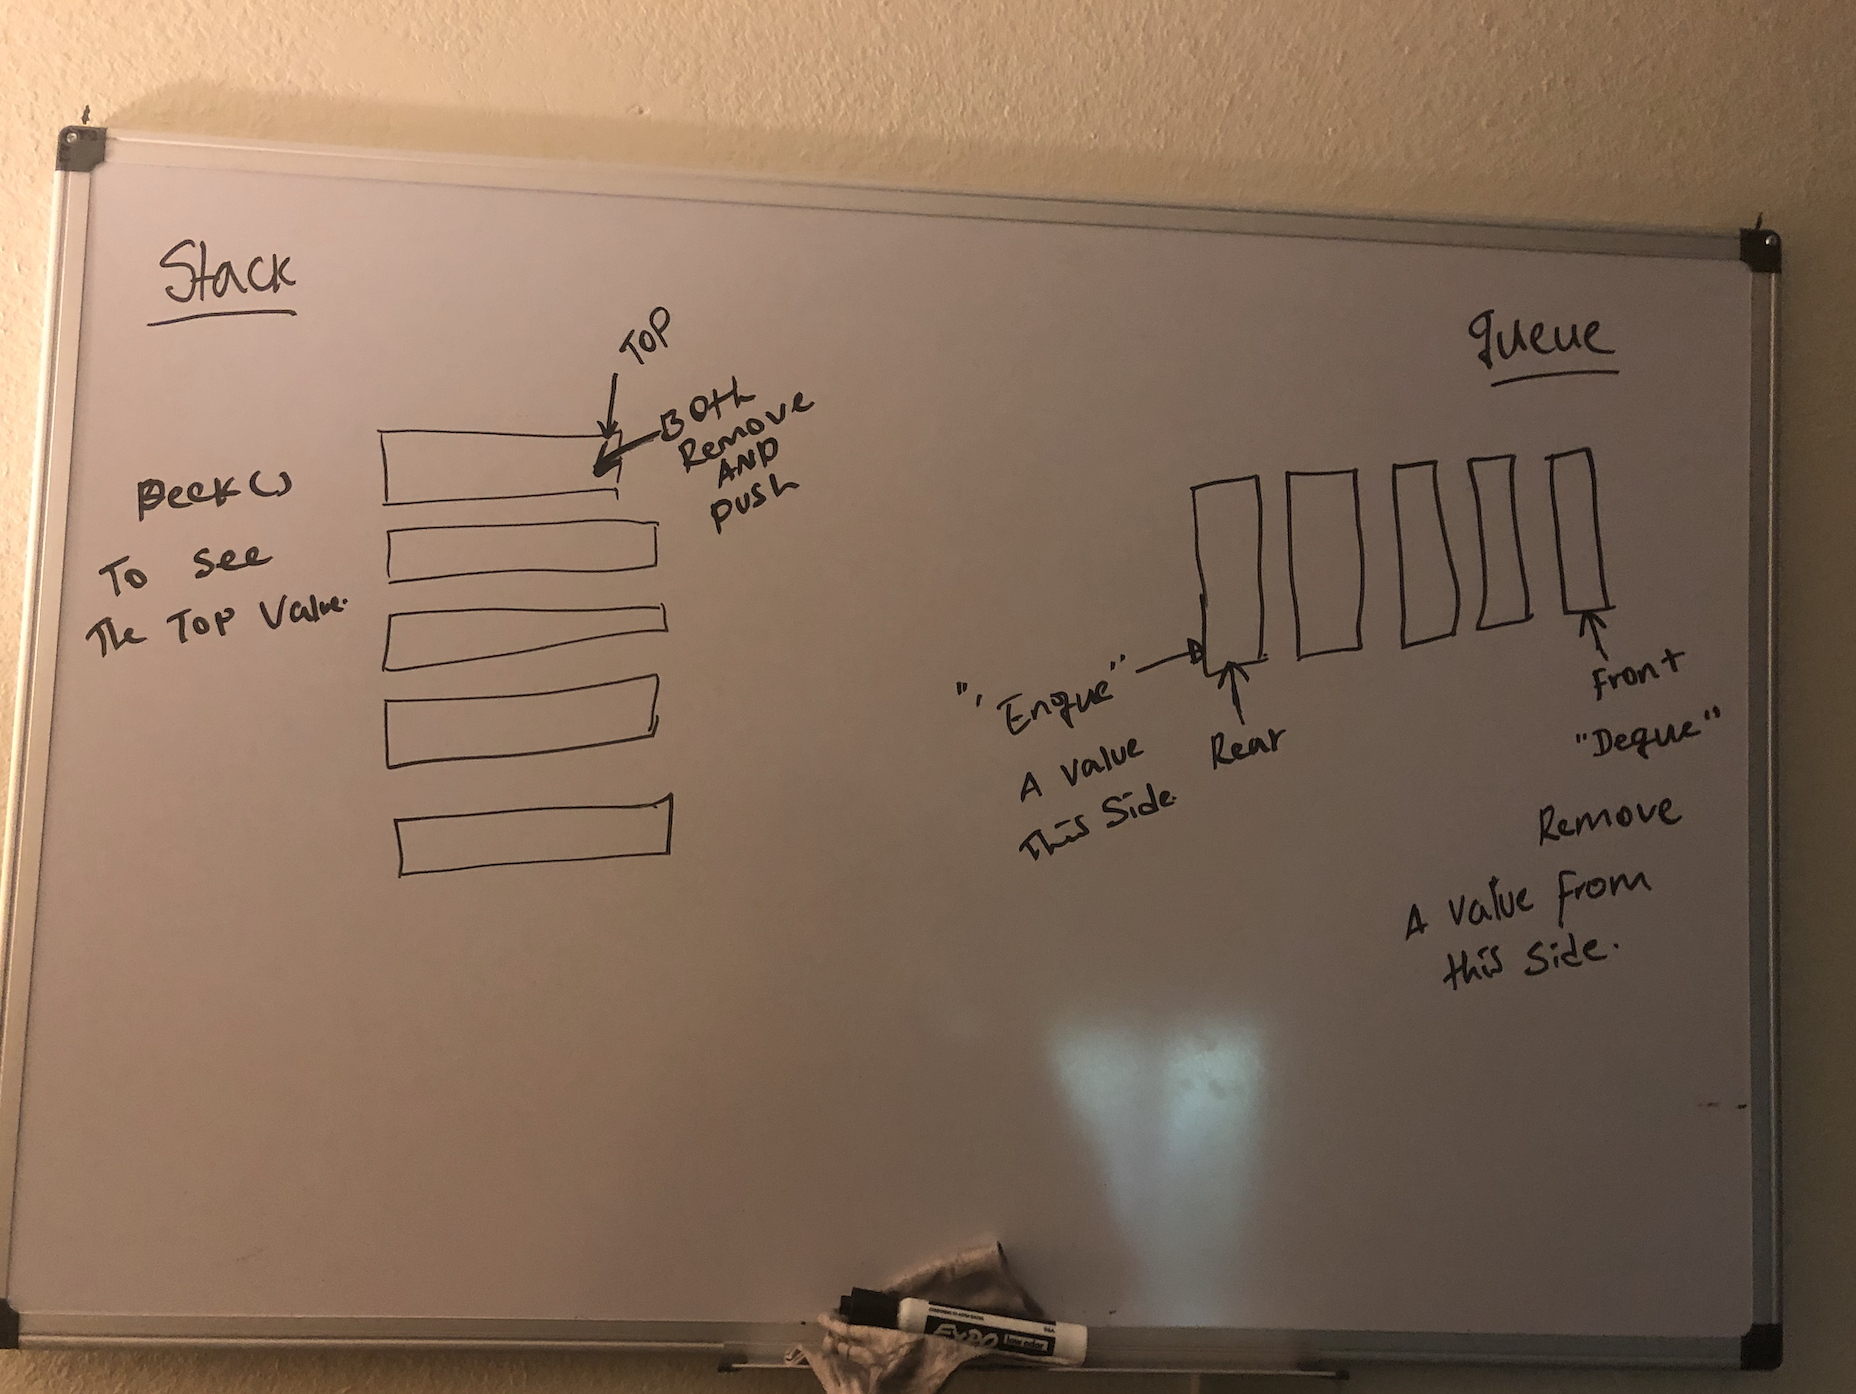 Stack
TOP
Both
Remove
AND
push
Peek()
To see
The Top Value.
queue
"' Enque"
A value
this side.
Rear
Front
"Deque"
Remove
A value from
this side.
EXPO
low odor